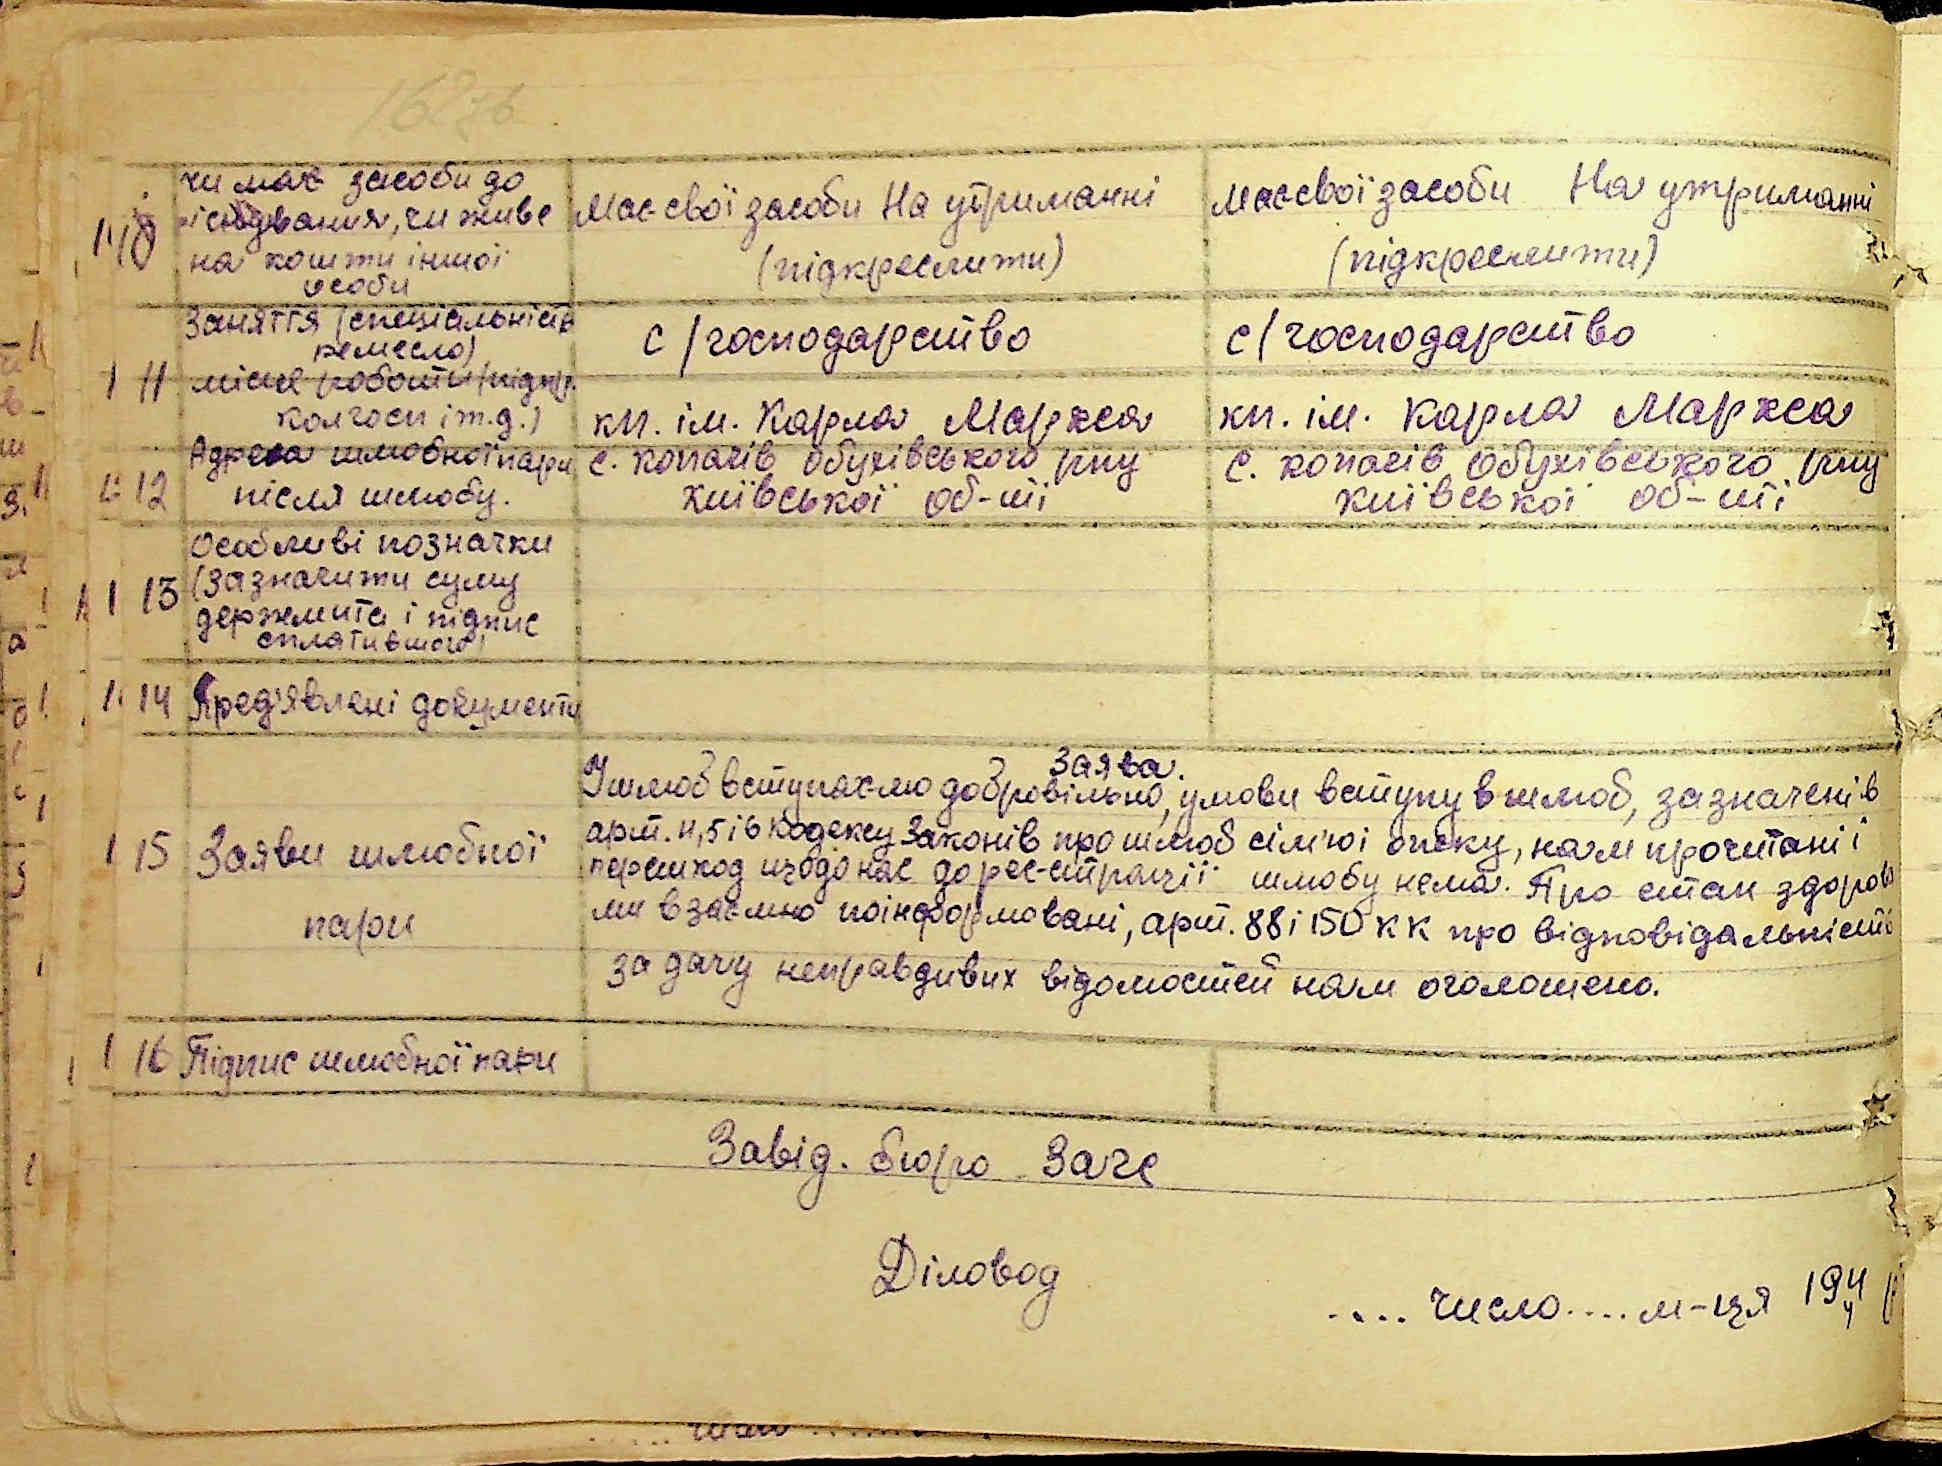 162зв
10 чи має засоби до
існування, чи живе
на кошти іншої
особи
Має свої засоби На утриманні
(підкреслити)
Має свої засоби На утриманні
(підкреслити)
11 Заняття (спеціальність
ремесло)
місце роботи (підпр.
колгосп і т.д.)
с/господарство
кп. ім. Карла Маркса
с/господарство
кп. ім. Карла Маркса
12 Адреса шлюбної пари
після шлюбу.
с. Копачів Обухівського рну
Київської об-ті
с. Копачів Обухівського рну
Київської об-ті
13 Особливі позначки
(Зазначити суму
держмита і підпис
сплатившого)
14 Пред'явлені документи
15 Заяви шлюбної
пари
Заява.
У шлюб вступаємо добровільно, умови вступу в шлюб, зазначені в
арт. 4,5 і 6 кодексу Законів про шлюб сім'ю і опіку, нам прочитані і
перешкод щодо нас до реєстрації шлюбу нема. Про стан здоровя
ми взаємно поінформовані, арт. 88 і 150 КК про відповідальність
за дачу неправдивих відомостей нам оголошено.
16 Підпис шлюбної пари
Завід. бюро Загс
Діловод
.... число .... м-ця 194 р
число